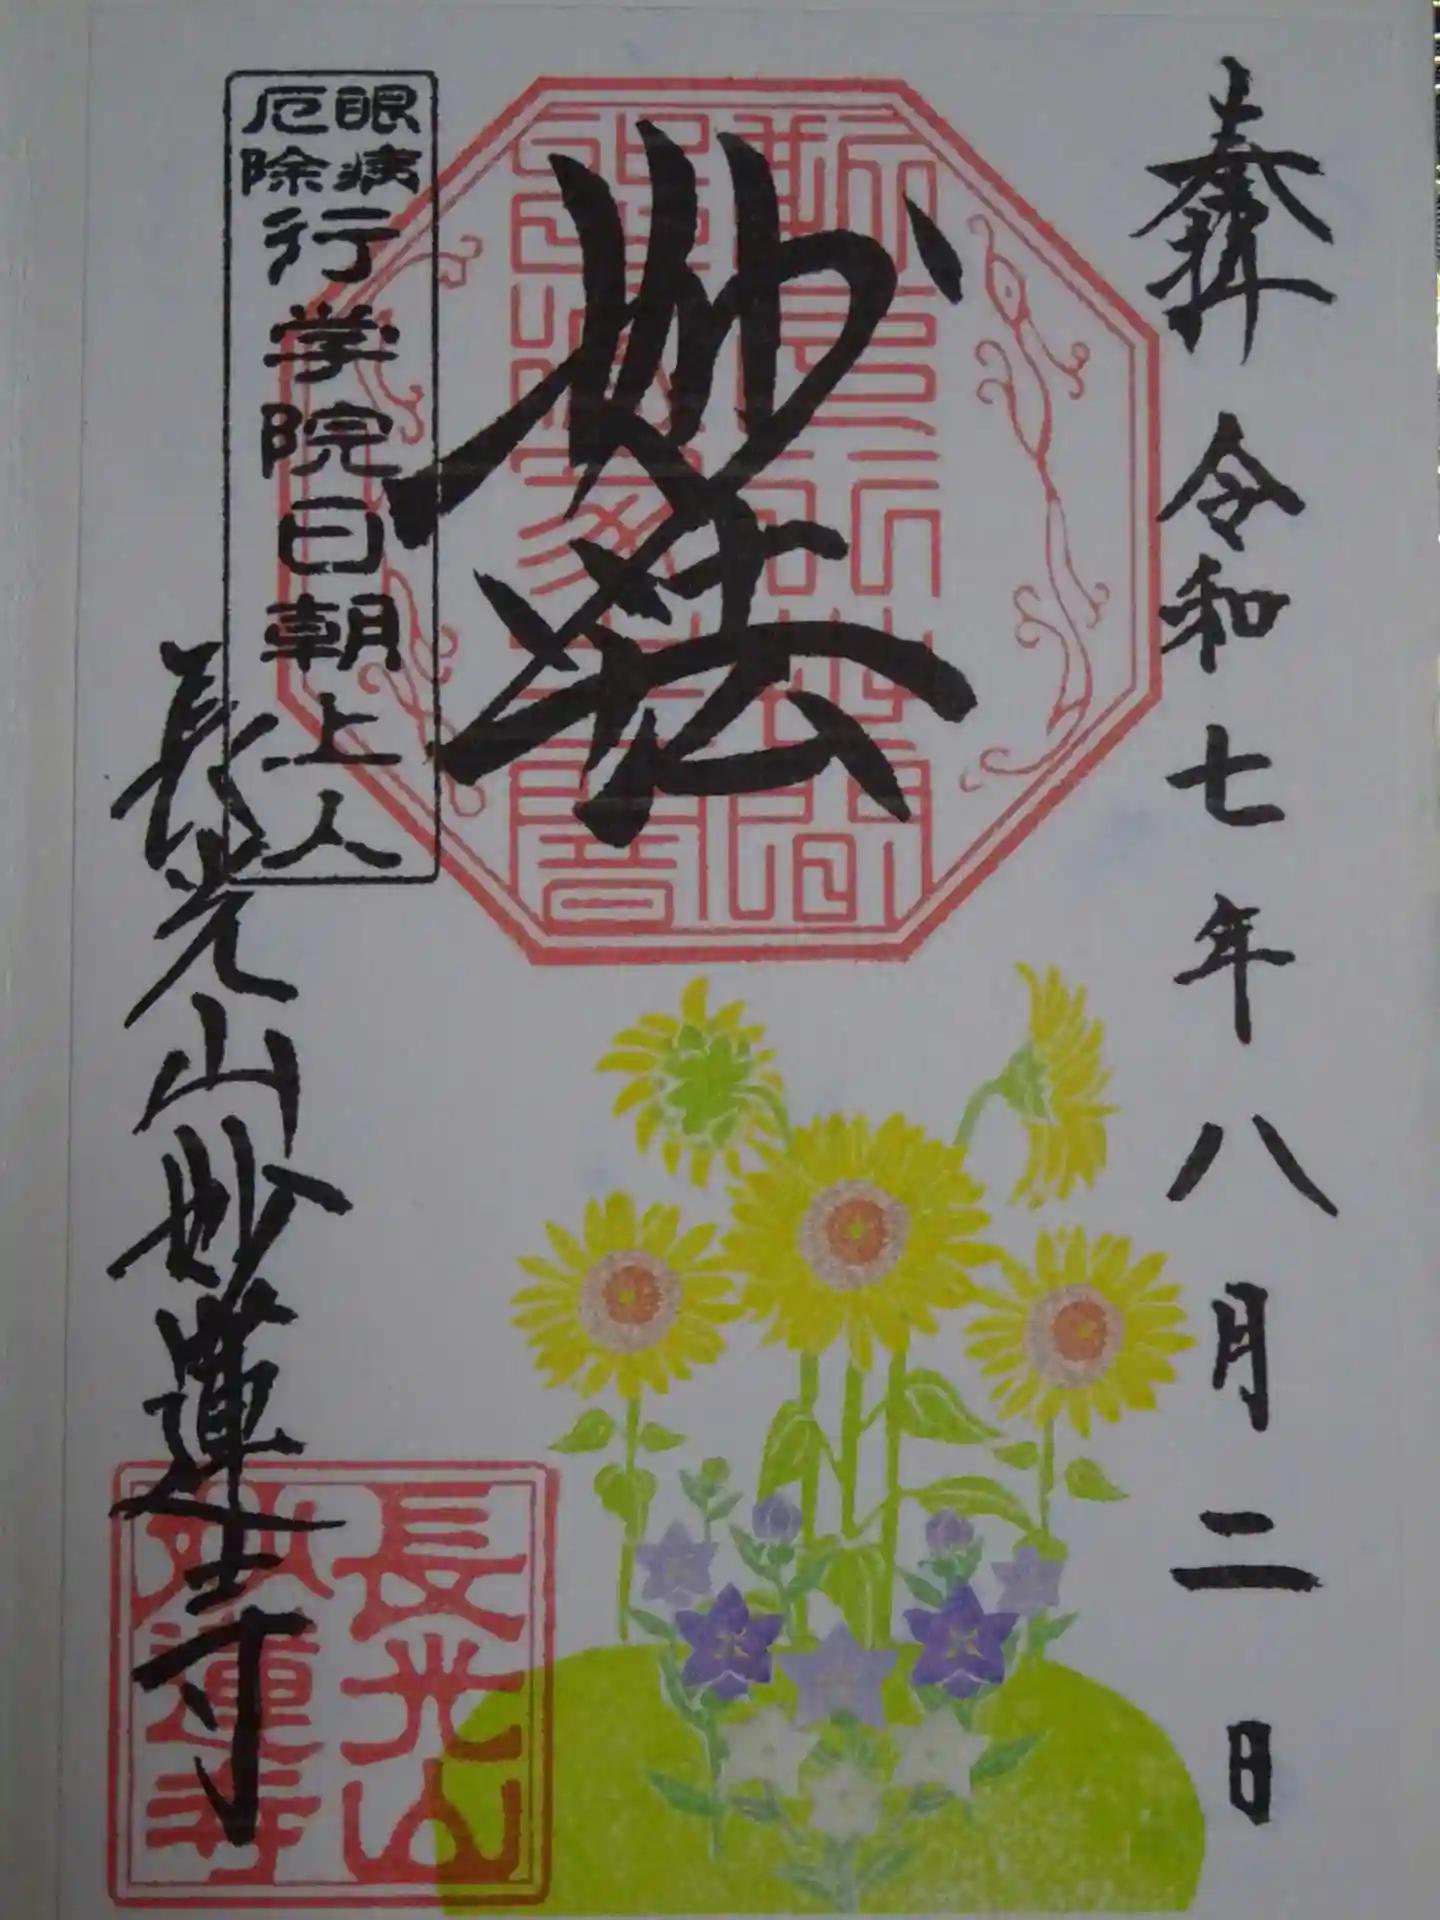 奉拝 令和七年八月二日
妙法
眼病
厄除
行学院日朝上人
長光山妙蓮寺
長光山
妙蓮寺